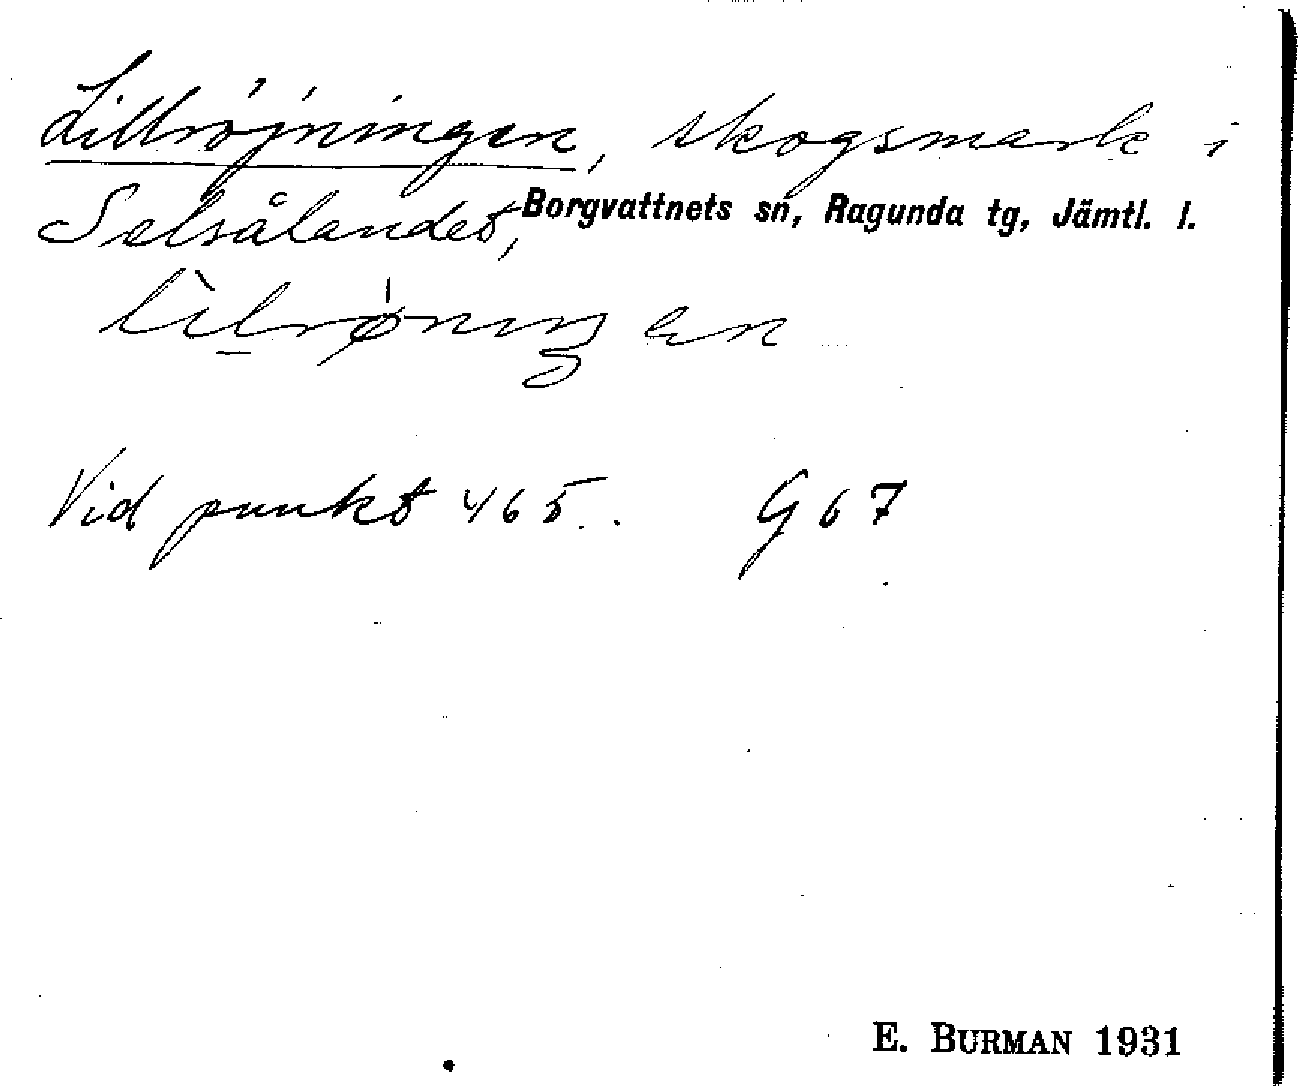 Lillröjningen, skogsmark i
Selsålandet, Borgvattnets sn, Ragunda tg, Jämtl. l.
lìlrøningen
Vid punkt 465. G67
E. BURMAN 1931